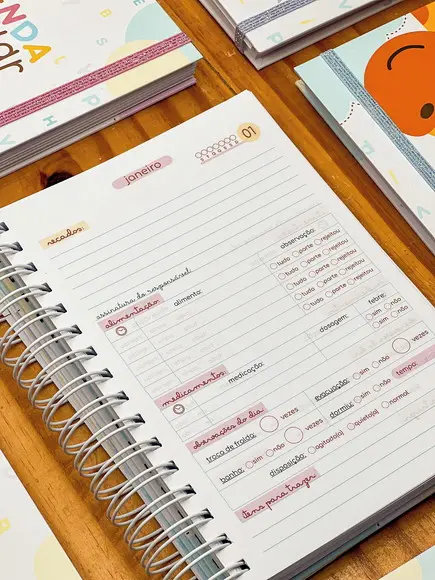 NDA
janeiro
01
D S T Q Q S S
recados:
assinatura do responsável:
alimentação
alimento:
observação:
tudo parte rejeitou
tudo parte rejeitou
tudo parte rejeitou
tudo parte rejeitou
tudo parte rejeitou
medicamentos
medicação:
dosagem:
febre:
sim não
sim não
observações do dia
troca de fralda: vezes
evacuação: sim não vezes
banho: sim não
dormiu: sim não tempo:
disposição: agitado(a) quieto(a) normal
itens para trazer